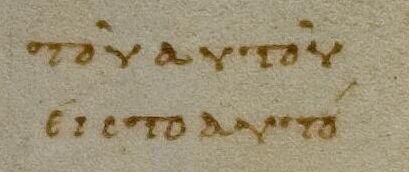 τοῦ αὐτοῦ
εἰς τὸ αὐτό